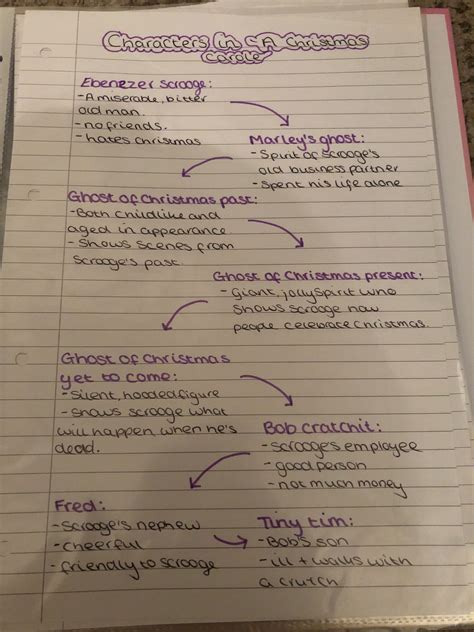 Characters in A Christmas
carole
Ebenezer scrooge:
- A miserable, bitter
old man.
- no friends.
- hates christmas
Marley's ghost:
- Spirit of scrooge's
old business partner
- Spent his life alone
Ghost of christmas past:
- Both childlike and
aged in appearance
- Shows scenes from
scrooge's past.
Ghost of christmas present:
- Giant, jolly spirit who
shows scrooge how
people celebrate christmas.
Ghost of christmas
yet to come:
- silent, hooded figure
- shows scrooge what
will happen when he's
dead.
Bob cratchit:
- scrooge's employee
- good person
- not much money
Fred:
- scrooge's nephew
- cheerful
- friendly to scrooge
Tiny tim:
- Bob's son
- ill + walks with
a crutch